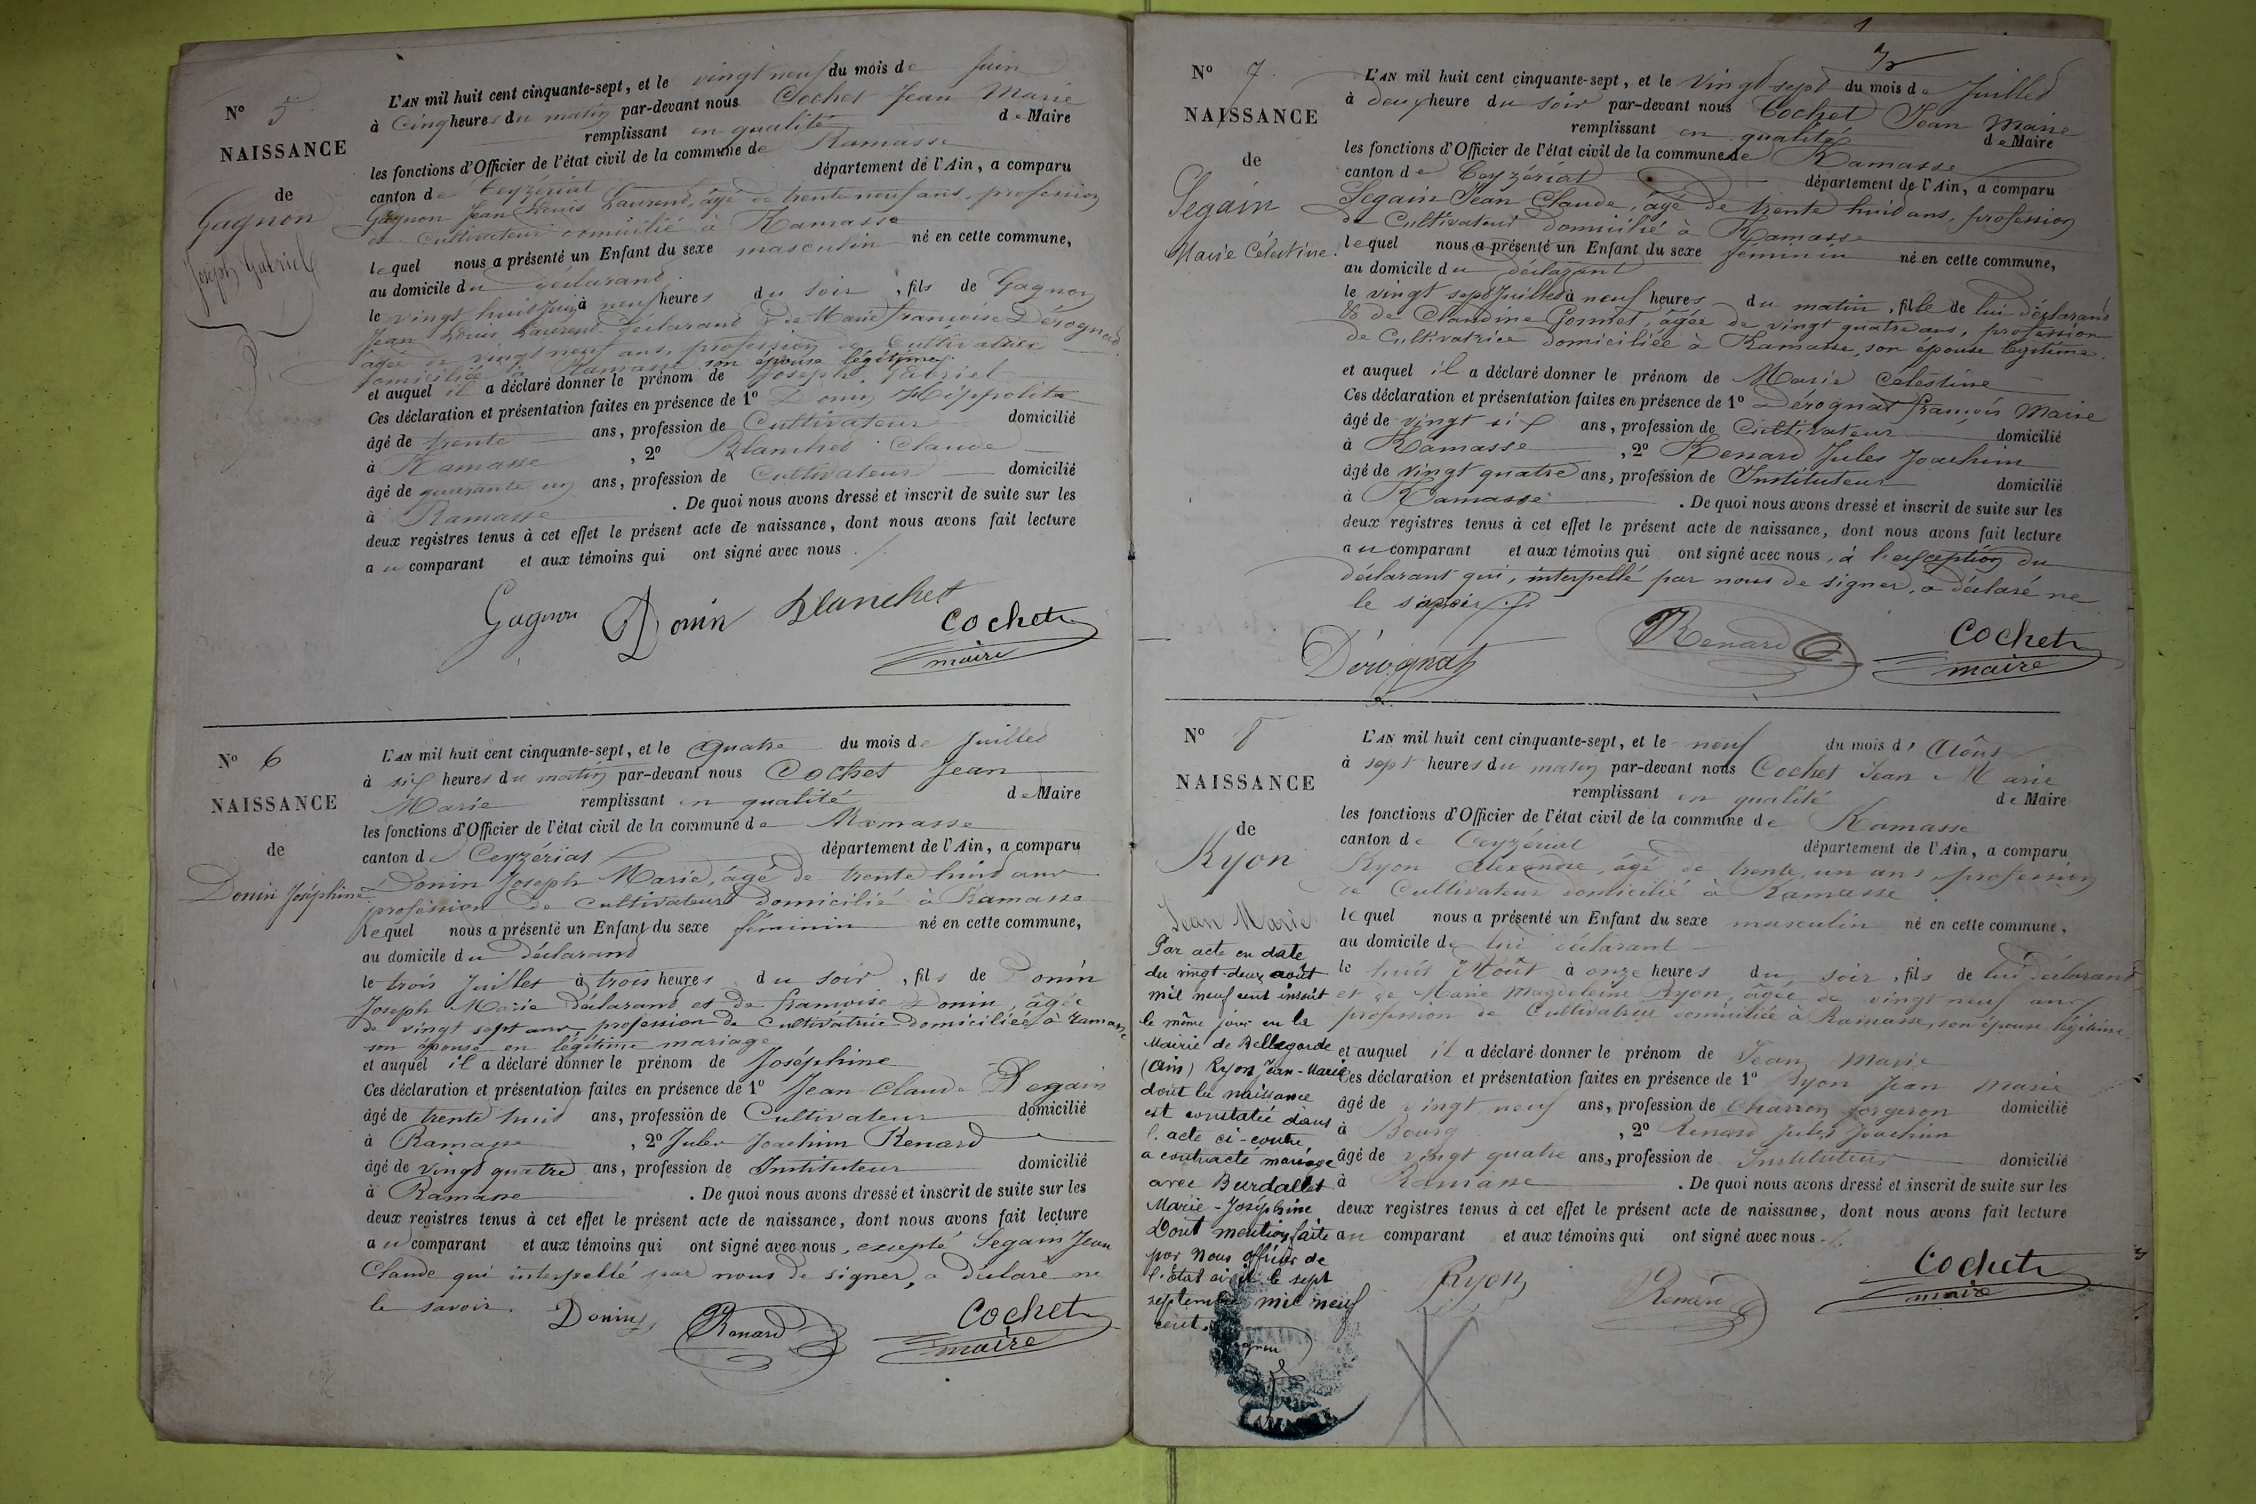 N° 5
NAISSANCE
de
Gagnon
Joseph Gabriel
L'AN mil huit cent cinquante-sept, et le vingt neuf du mois de Juin
à cinq heures du matin par-devant nous Cochet Jean Marie
remplissant en qualité de Maire
les fonctions d'Officier de l'état civil de la commune de Ramasse
canton de Ceyzériat département de l'Ain, a comparu
Gagnon Jean Louis Laurent, âgé de trente neuf ans, profession
de Cultivateur domicilié à Ramasse
lequel nous a présenté un Enfant du sexe masculin né en cette commune,
au domicile du déclarant
le vingt huit Juin à neuf heures du soir, fils de Gagnon
Jean Louis Laurent déclarant & de Marie françoise Dérognat
âgée de vingt neuf ans, profession de Cultivatrice
domiciliée à Ramasse son épouse légitime
et auquel il a déclaré donner le prénom de Joseph Gabriel
Ces déclaration et présentation faites en présence de 1° Donin Hippolite
âgé de trente ans, profession de Cultivateur domicilié
à Ramasse, 2° Blanchet Claude
âgé de quarante un ans, profession de Cultivateur domicilié
à Ramasse. De quoi nous avons dressé et inscrit de suite sur les
deux registres tenus à cet effet le présent acte de naissance, dont nous avons fait lecture
au comparant et aux témoins qui ont signé avec nous
Gagnon Donin Blanchet Cochet
maire
N° 6
NAISSANCE
de
Donin Joséphine
L'AN mil huit cent cinquante-sept, et le quatre du mois de Juillet
à six heures du matin par-devant nous Cochet Jean
Marie remplissant en qualité de Maire
les fonctions d'Officier de l'état civil de la commune de Ramasse
canton de Ceyzériat département de l'Ain, a comparu
Donin Joseph Marie, âgé de trente huit ans
profession de cultivateur domicilié à Ramasse
lequel nous a présenté un Enfant du sexe féminin né en cette commune,
au domicile du déclarant
le trois Juillet à trois heures du soir, fils de Donin
Joseph Marie déclarant et de françoise Donin, âgée
de vingt sept ans, profession de cultivatrice domiciliée à Ramasse
son épouse en légitime mariage
et auquel il a déclaré donner le prénom de Joséphine
Ces déclaration et présentation faites en présence de 1° Jean Claude Segain
âgé de trente huit ans, profession de Cultivateur domicilié
à Ramasse, 2° Jules Joachim Renard
âgé de vingt quatre ans, profession de Instituteur domicilié
à Ramasse. De quoi nous avons dressé et inscrit de suite sur les
deux registres tenus à cet effet le présent acte de naissance, dont nous avons fait lecture
au comparant et aux témoins qui ont signé avec nous, excepté Segain Jean
Claude qui interpellé par nous de signer, a déclaré ne
le savoir.
Donin Renard Cochet
maire
N° 7
NAISSANCE
de
Segain
Marie Célestine.
L'AN mil huit cent cinquante-sept, et le Vingt sept du mois de Juillet
à deux heure du soir par-devant nous Cochet Jean Marie
remplissant en qualité de Maire
les fonctions d'Officier de l'état civil de la commune de Ramasse
canton de Ceyzériat département de l'Ain, a comparu
Segain Jean Claude, âgé de trente huit ans, profession
de Cultivateur domicilié à Ramasse
lequel nous a présenté un Enfant du sexe féminin né en cette commune,
au domicile du déclarant
le vingt sept Juillet à neuf heures du matin, fille de lui déclarant
& de Claudine Gonnet, âgée de vingt quatre ans, profession
de Cultivatrice domiciliée à Ramasse, son épouse légitime.
et auquel il a déclaré donner le prénom de Marie Célestine
Ces déclaration et présentation faites en présence de 1° Dérognat françois Marie
âgé de vingt six ans, profession de Cultivateur domicilié
à Ramasse, 2° Renard Jules Joachim
âgé de vingt quatre ans, profession de Instituteur domicilié
à Ramasse. De quoi nous avons dressé et inscrit de suite sur les
deux registres tenus à cet effet le présent acte de naissance, dont nous avons fait lecture
au comparant et aux témoins qui ont signé avec nous, à l'exception du
déclarant qui, interpellé par nous de signer, a déclaré ne
le savoir
Dérognat Renard Cochet
maire
N° 8
NAISSANCE
de
Ryon
Jean Marie
Par acte en date
du vingt-deux août
mil neuf cent inscrit
le même jour en la
Mairie de Bellegarde
(Ain) Ryon Jean-Marie
dont la naissance
est constatée dans
l'acte ci-contre
a contracté mariage
avec Burdallet
Marie-Joséphine
Dont mention faite
par nous officier de
l'état civil le sept
septembre mil neuf
cent.
L'AN mil huit cent cinquante-sept, et le neuf du mois d'Août
à sept heures du matin par-devant nous Cochet Jean Marie
remplissant en qualité de Maire
les fonctions d'Officier de l'état civil de la commune de Ramasse
canton de Ceyzériat département de l'Ain, a comparu
Ryon Alexandre, âgé de trente un ans profession
de Cultivateur domicilié à Ramasse
lequel nous a présenté un Enfant du sexe masculin né en cette commune,
au domicile de lui déclarant
le huit Août à onze heures du soir, fils de lui déclarant
et de Marie Magdeleine Ryon, âgée de vingt neuf ans
profession de Cultivatrice domiciliée à Ramasse, son épouse légitime
et auquel il a déclaré donner le prénom de Jean Marie
Ces déclaration et présentation faites en présence de 1° Ryon Jean Marie
âgé de vingt neuf ans, profession de Charron forgeron domicilié
à Bourg, 2° Renard Jules Joachim
âgé de vingt quatre ans, profession de Instituteur domicilié
à Ramasse. De quoi nous avons dressé et inscrit de suite sur les
deux registres tenus à cet effet le présent acte de naissance, dont nous avons fait lecture
au comparant et aux témoins qui ont signé avec nous.
Ryon Renard Cochet
maire